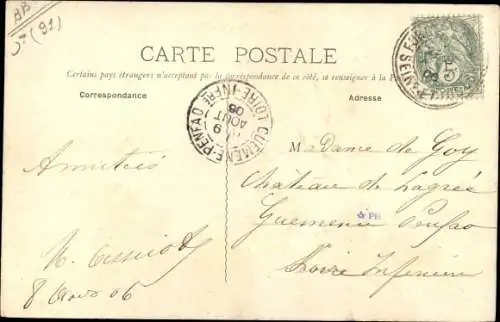 BB
(91)
CARTE POSTALE
Certains pays étrangers n'acceptant pas la correspondance de ce côté, se renseigner à la P
Correspondance
Adresse
GUÉMENÉ-PENFAO
9
AOUT
06
LOIRE-INFRE
5c
Madame de Goy
Château de Lagrée
Guemenée Penfao
Loire Inférieure
PH
Amitiés
8 Août 06